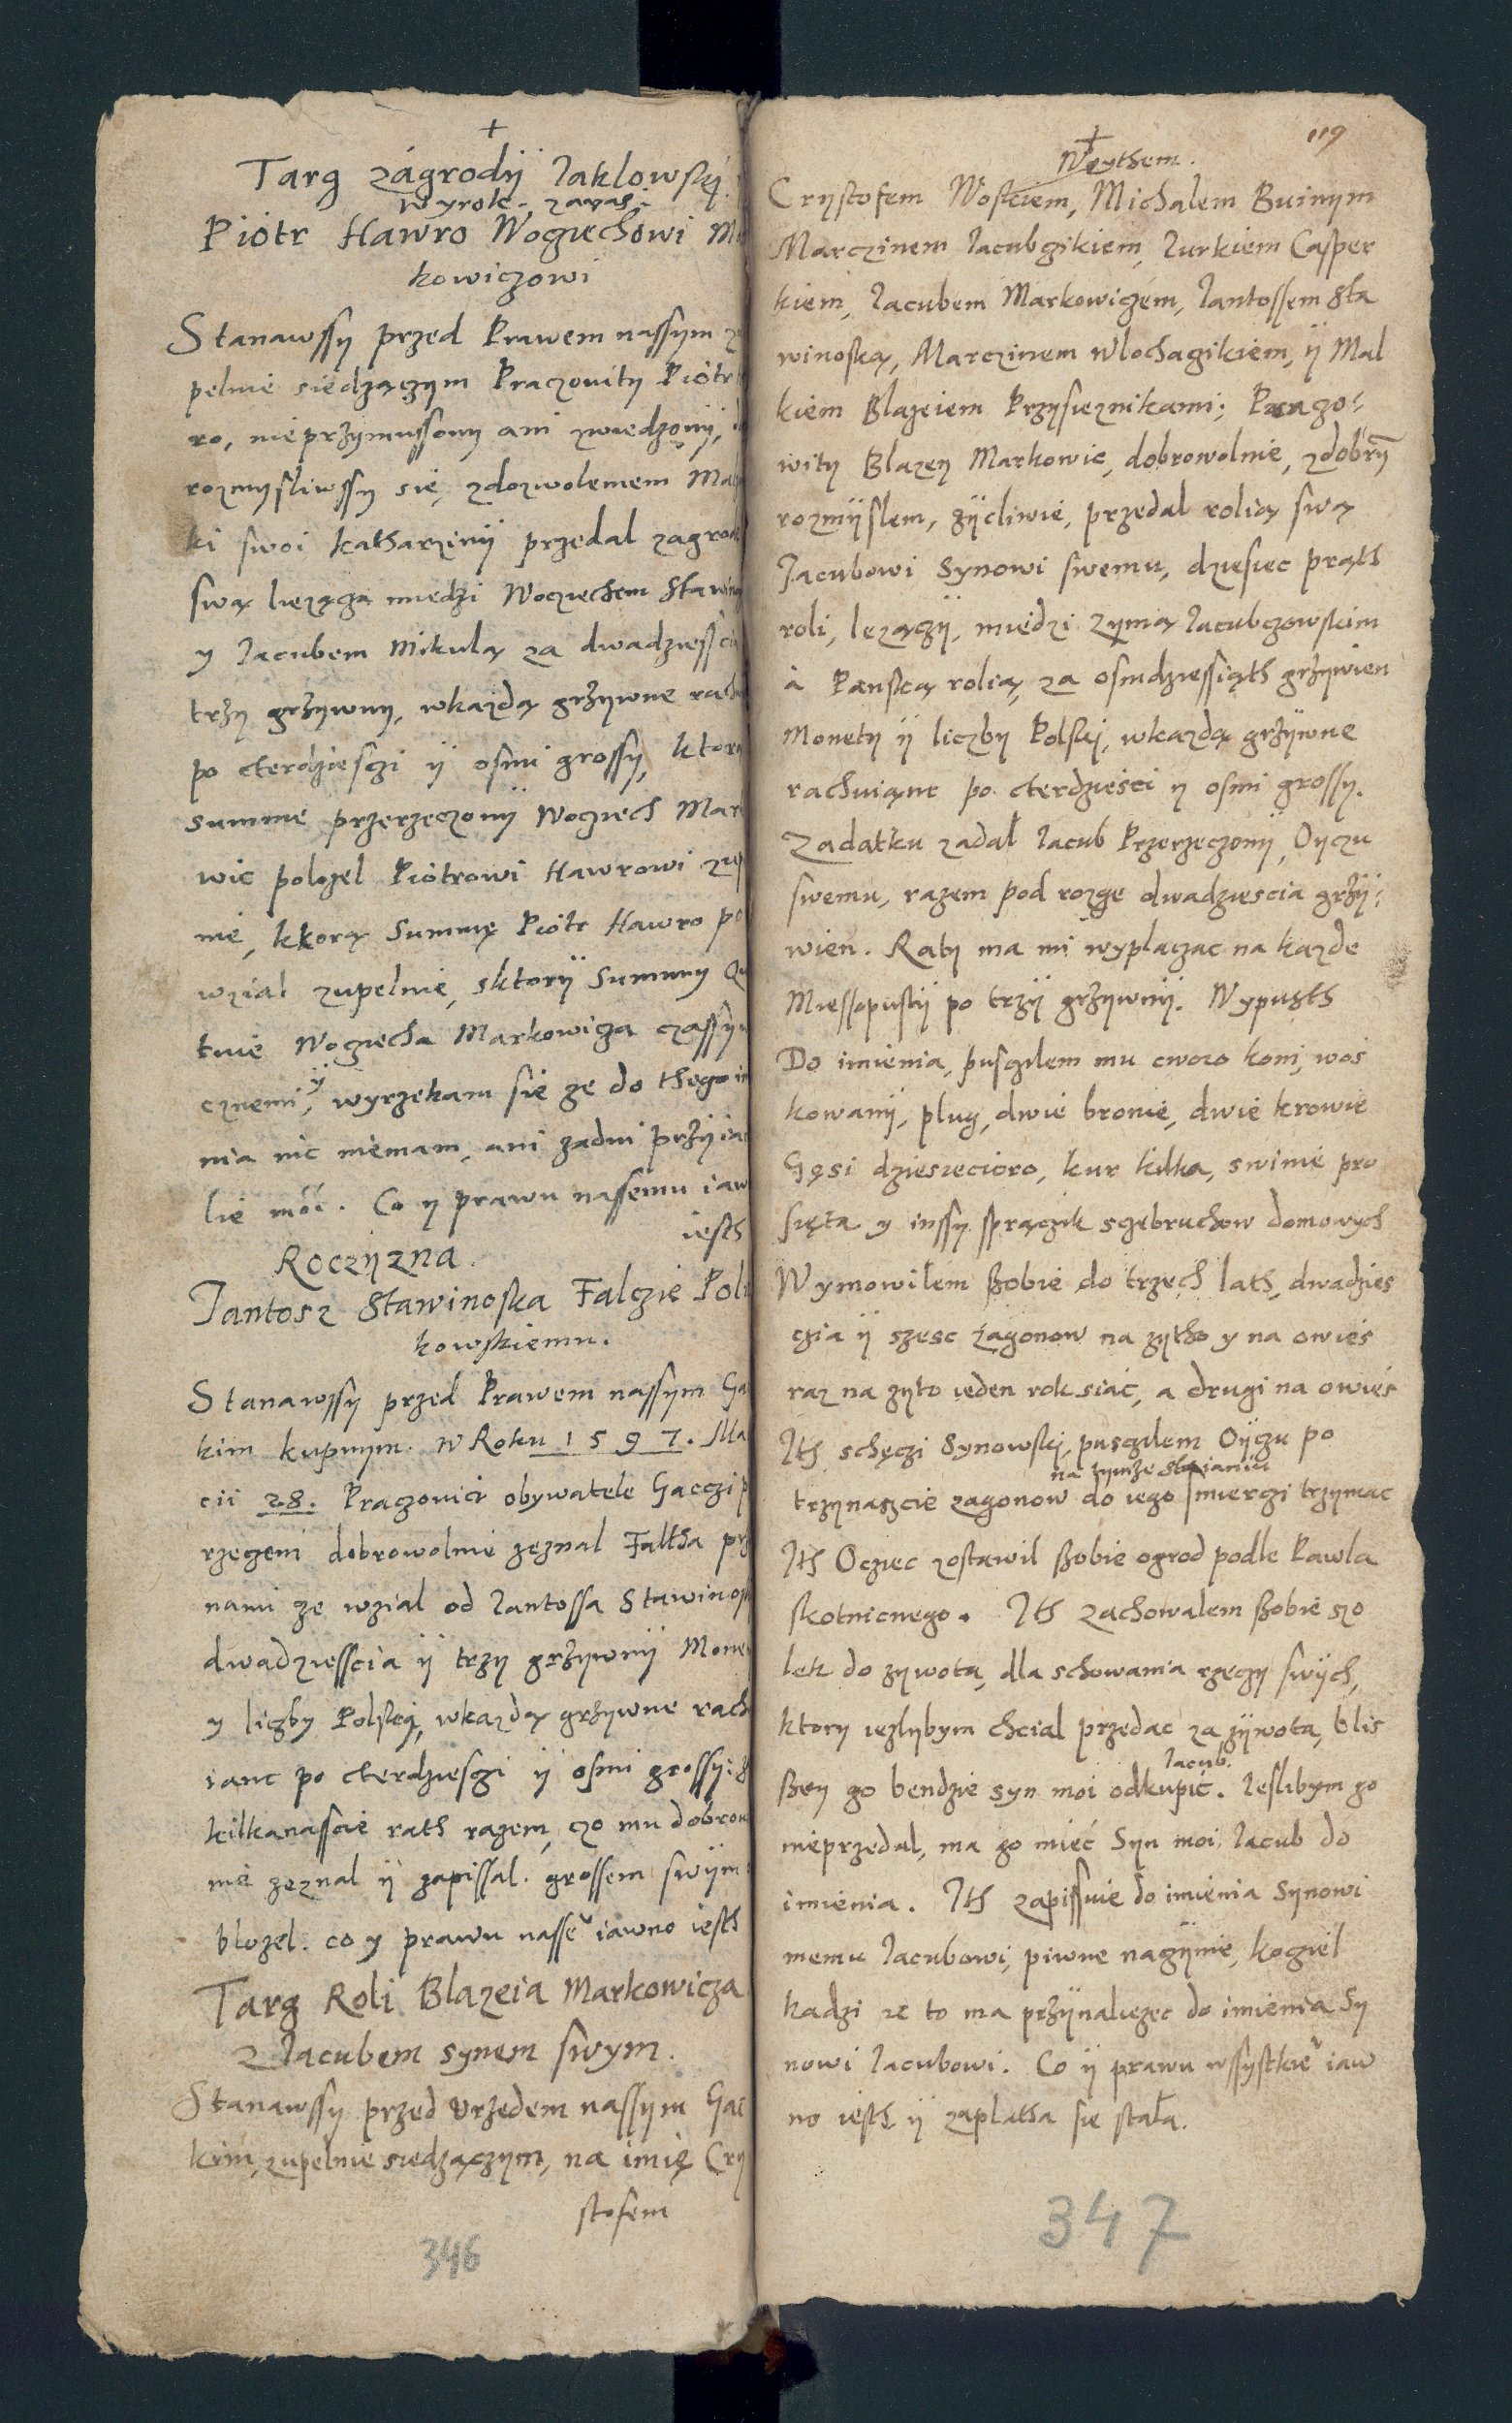 +
Targ zagrodÿ Jaklowskį
wyrok. zaras.
Piotr Hawro Wogiechowi M
kowiczowi
Stanawssy przed Prawem nassym z
pelnie siedzączym Praczovity Piotr
ro, nieprzymussony ani zwiedzonÿ,
rozmysliwssy się, zdozwolemem Ma
ki swoi Katharzinÿ przedal zagrod
swą liezącą miedzi Wocziechem Stawino
y Jacubem Mikulą za dwadziessci
trzy grzywny, wkazdą grzywne rach
po cterdziesczi ÿ osmi grossy, ktor
summe przerzeczonÿ Wogiech Mar
wic polozel Piotrowi Hawrowi zup
nie, ktorą Summę Piotr Hawro po
wzial zupelnie, sktorÿ Summy Qu
tuie Wogiecha Markowicza czassy
cznemi, ÿ wyrzekam się ze do thego i
nia nic niemam, ani zadni przÿia
lie móĩ. Co y prawu nassemu iaw
iesth
Roczÿzna.
Jantosz Stawinoska Falczie Pol
kowskiemu.
Stanawssy przed Prawem nassym Ga
kim kupnym. W Roku 1597. Ma
cii 28. Praczovici obywatele Gacczi p
rzeczeni dobrowolnie zeznal Faltha prz
nami ze wzial od Jantossa Stawinos
dwadziesscia ÿ trzy grzÿwnÿ Mone
y liczby Polscį, wkazdą grzÿwne rach
ianc po cterdziesczi ÿ osmi grossy: z
kilkanascie rath razem, czo mu dobrow
nie zeznal ÿ zapissal. grossem swÿm
blozel. co y prawu nasseͮ iawno iesth
Targ Roli Blazeia Markowicza
z Jacubem synem swym.
Stanawssy przed Vrzedem nassym Gac
kim, zupelnie siedzączym, na imię Cry
stofem
346
119
+
Woythem.
Crystofem Woskiem, Michalem Buinym
Marczinem Jacubgikiem, Jurkiem Casper
kiem, Jacubem Markowiczem, Jantossem Sta
winoską, Marczinem Wlochagikiem, ÿ Mal
kiem Blazeiem Przysieznikami; Praczo:
wity Blazey Markowic, dobrowolnie, zdobrȳ
rozmÿslem, zÿcliwie, przedal rolią swą
Jacubowi Synowi swemu, dziesiec prąth
roli, lezączÿ, miedzi zymą Jacubczowskim
à Panską rolią, za osmdziessiąth grzywien
Monety ÿ liczby Polskį, wkazdą grzÿwne
rachuiąnc po cterdziesci y osmi grossy.
Zadatku zadał Jacub Przerzeczonÿ, Oyczu
swemu, razem pod rozge dwadziescia grzÿ:
wien. Raty ma mi wyplaczac na kazde
Miessopustÿ po trzÿ grzywnÿ. Wypusth
Do imienia, pusczilem mu cworo koni, wos
kowanÿ, plug, dwie bronie, dwie krowie
Gęsi dziesiecioro, kur kilka, swinie pro
sięta y inssy sprączik sczebruchow domowych
Wymowilem ßobie do trzech lath, dwadzies
czia ÿ szesc zagonow na zytho y na owies
raz na zyto ieden rok siac, a drugi na owies
Ith schęczi Synowskį, pusczilem Oÿczu po
na tymze stąianiu
trzynaszcie zagonow do iego smierczi trzymac
Ith Oczec zostawil ßobie ogrod podle Pawla
skotnicnego. Ith zachowalem ßobie szo
lek do zywota, dla schowania rzeczy swÿch,
ktory iezlybym chcial przedac za zÿwota, blis
ßzy go bendzie syn moi Jacub. odkupić. Jeslibym go
nieprzedal, ma go mieć Syn moi Jacub do
imienia. Ith zapissuie do imienia Synowi
memu Jacubowi, piwne naczÿnie, kogiel
kadzi ze to ma przÿnaliezec do imienia Sy
nowi Jacubowi. Co ÿ prawu wssystkieͮ iaw
no iesth ÿ zaplatha sie stała.
347